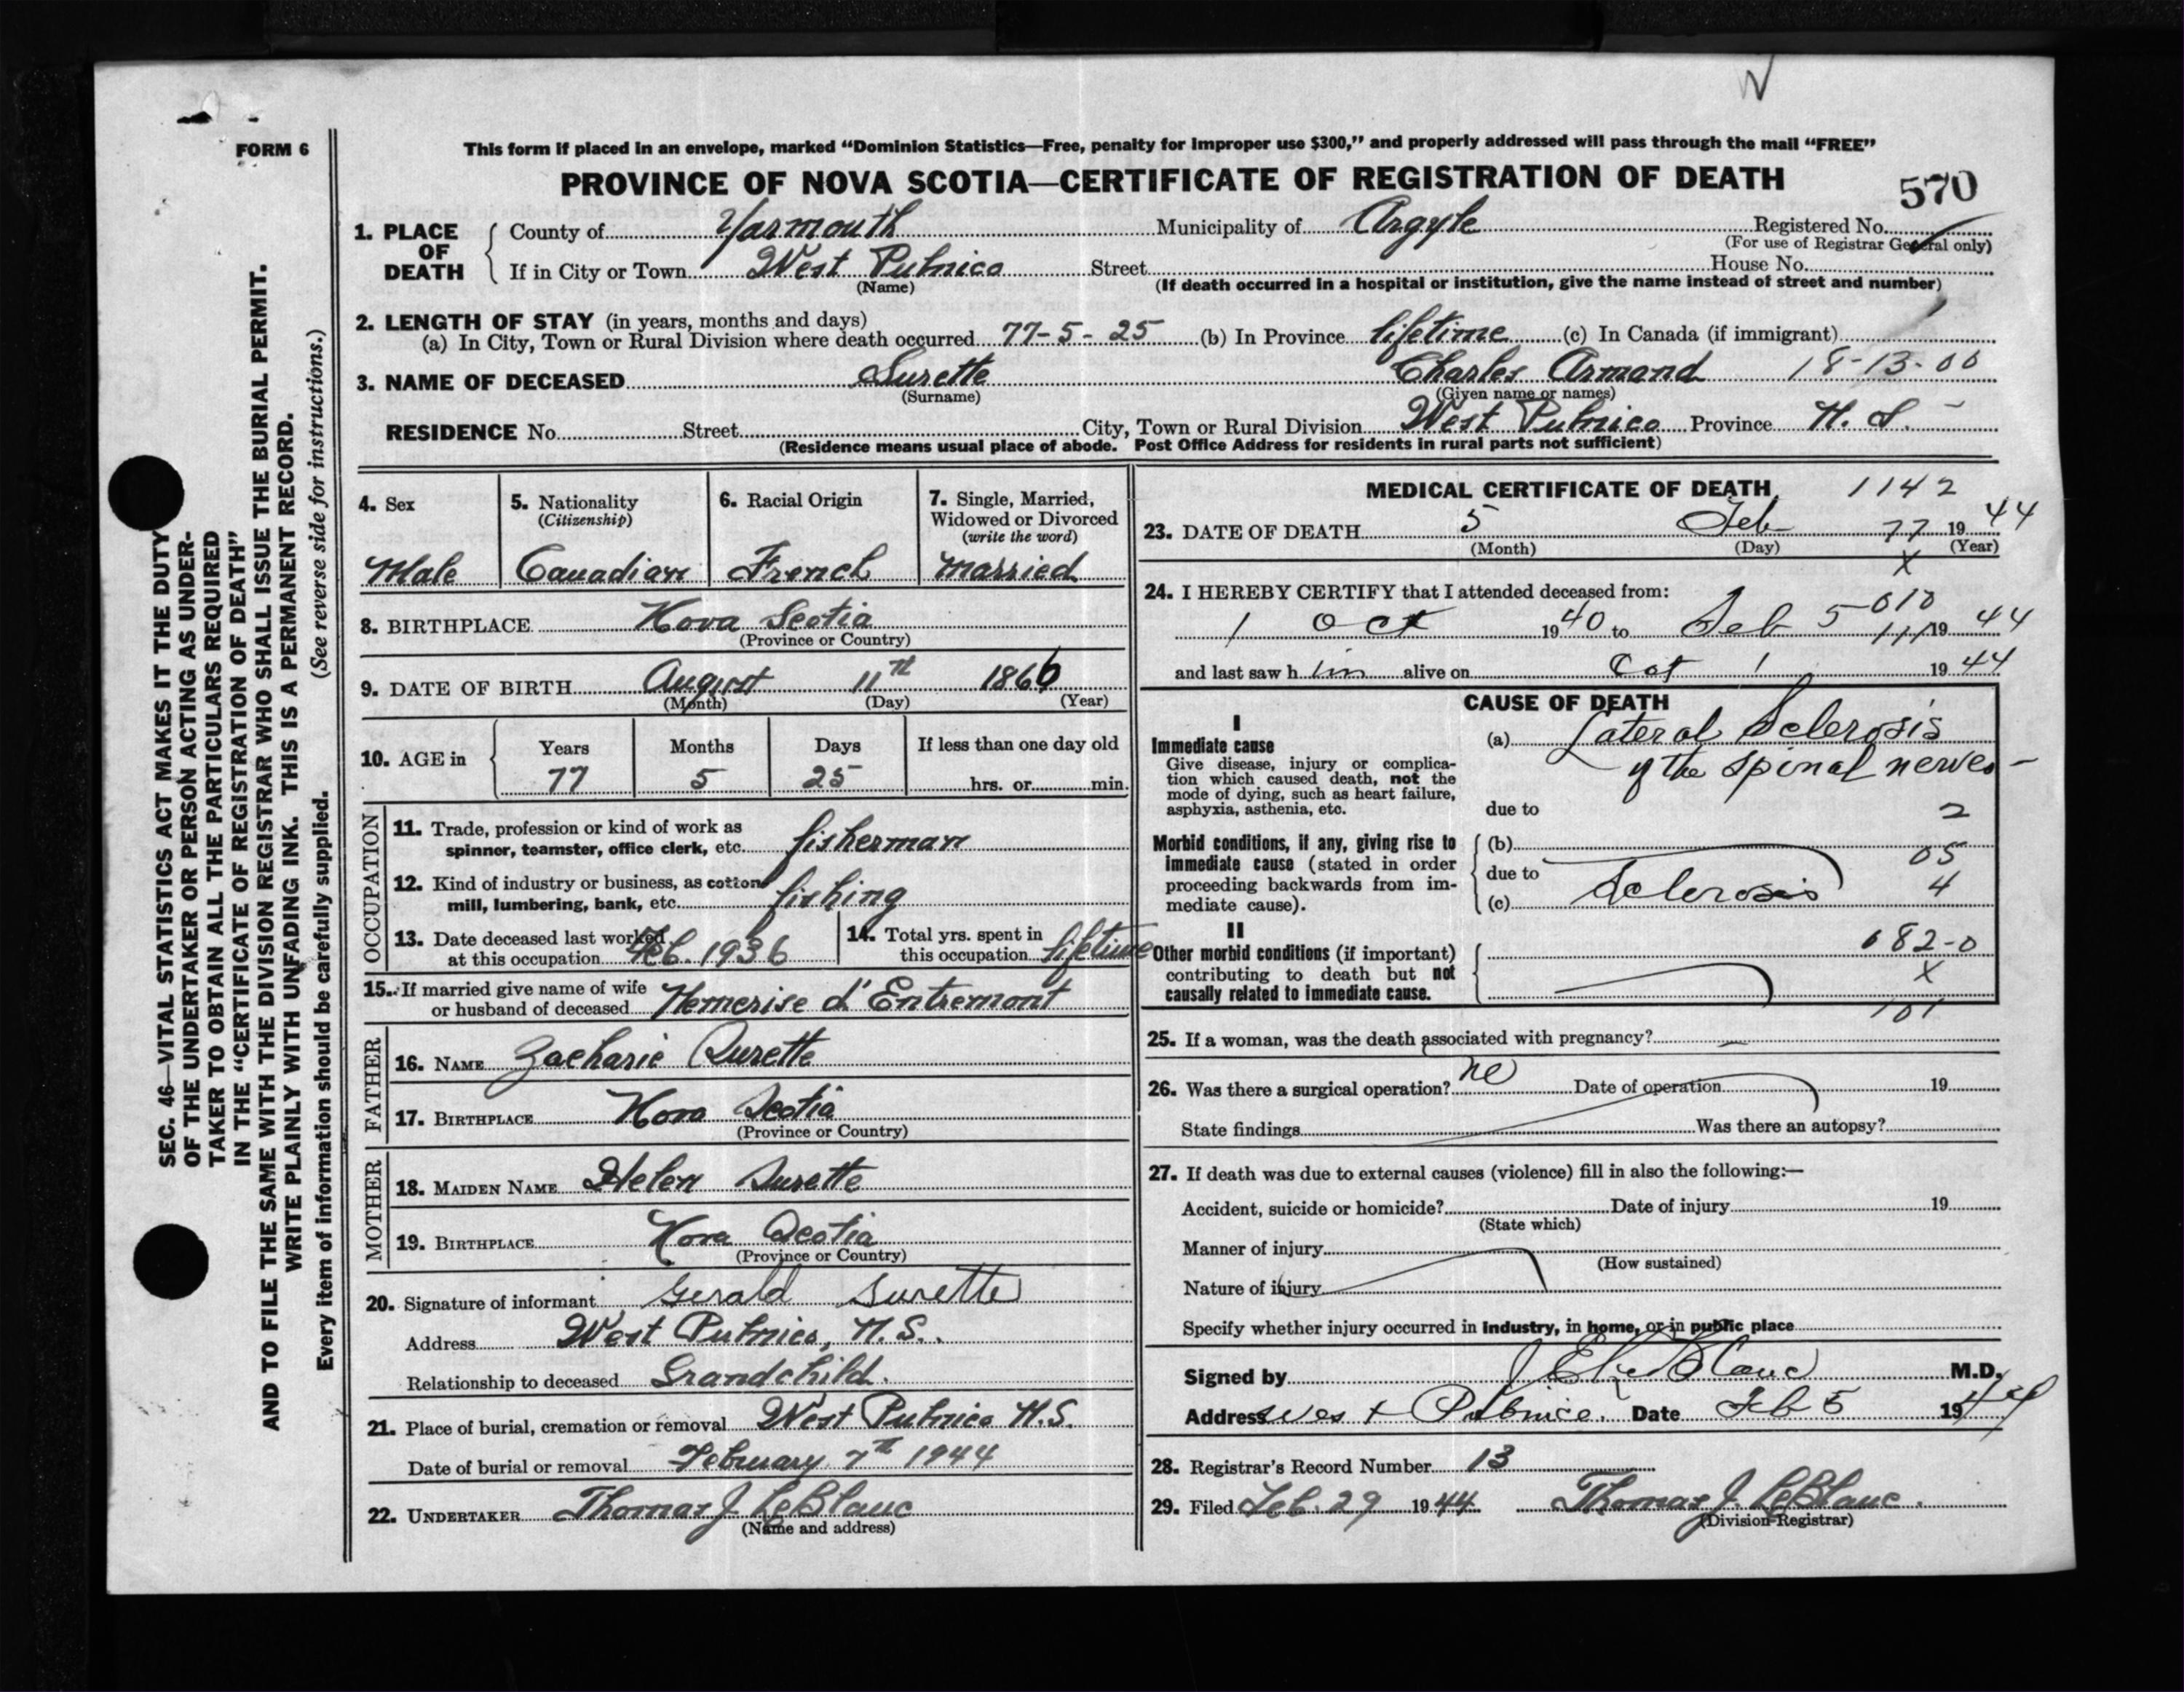 FORM 6
This form if placed in an envelope, marked “Dominion Statistics—Free, penalty for improper use $300,” and properly addressed will pass through the mail “FREE”
PROVINCE OF NOVA SCOTIA—CERTIFICATE OF REGISTRATION OF DEATH
570
1. PLACE OF DEATH County of Yarmouth Municipality of Argyle Registered No.
(For use of Registrar General only)
If in City or Town West Pubnico Street House No.
(Name) (If death occurred in a hospital or institution, give the name instead of street and number)
2. LENGTH OF STAY (in years, months and days)
(a) In City, Town or Rural Division where death occurred 77-5-25 (b) In Province lifetime (c) In Canada (if immigrant)
3. NAME OF DECEASED Surette Charles Armand 18-13-00
(Surname) (Given name or names)
RESIDENCE No. Street City, Town or Rural Division West Pubnico Province N. S.
(Residence means usual place of abode. Post Office Address for residents in rural parts not sufficient)
4. Sex Male
5. Nationality (Citizenship) Canadian
6. Racial Origin French
7. Single, Married, Widowed or Divorced (write the word) Married
8. BIRTHPLACE Nova Scotia
(Province or Country)
9. DATE OF BIRTH August 11th 1866
(Month) (Day) (Year)
10. AGE in Years Months Days If less than one day old
77 5 25 hrs. or min.
OCCUPATION
11. Trade, profession or kind of work as
spinner, teamster, office clerk, etc. fisherman
12. Kind of industry or business, as cotton
mill, lumbering, bank, etc. fishing
13. Date deceased last worked
at this occupation Feb. 1936
14. Total yrs. spent in
this occupation lifetime
15. If married give name of wife
or husband of deceased Hemerise d'Entremont
FATHER
16. NAME Zacharie Surette
17. BIRTHPLACE Nova Scotia
(Province or Country)
MOTHER
18. MAIDEN NAME Helen Surette
19. BIRTHPLACE Nova Scotia
(Province or Country)
20. Signature of informant Gerald Surette
Address West Pubnico, N.S.
Relationship to deceased Grandchild.
21. Place of burial, cremation or removal West Pubnico N.S.
Date of burial or removal February 7th 1944
22. UNDERTAKER Thomas J. LeBlanc
(Name and address)
MEDICAL CERTIFICATE OF DEATH 1142
23. DATE OF DEATH 5 Feb 77 19 44
(Month) (Day) X (Year)
24. I HEREBY CERTIFY that I attended deceased from:
010
1 Oct 1940 to Feb 5 111 19 44
and last saw h im alive on Oct 1 19 44
CAUSE OF DEATH
I
Immediate cause
Give disease, injury or complication which caused death, not the
mode of dying, such as heart failure,
asphyxia, asthenia, etc.
(a) Lateral Sclerosis
of the spinal nerves -
due to 2
Morbid conditions, if any, giving rise to
immediate cause (stated in order
proceeding backwards from immediate cause).
(b) 05
due to
(c) Sclerosis 4
II
Other morbid conditions (if important)
contributing to death but not
causally related to immediate cause.
082-0
X
101
25. If a woman, was the death associated with pregnancy?
26. Was there a surgical operation? no Date of operation 19
State findings Was there an autopsy?
27. If death was due to external causes (violence) fill in also the following:—
Accident, suicide or homicide? Date of injury 19
(State which)
Manner of injury
(How sustained)
Nature of injury
Specify whether injury occurred in industry, in home, or in public place
Signed by J E LeBlanc M.D.
Address West Pubnico. Date Feb 5 1944
28. Registrar's Record Number 13
29. Filed Feb. 29 1944 Thomas J. LeBlanc.
(Division Registrar)
SEC. 46—VITAL STATISTICS ACT MAKES IT THE DUTY
OF THE UNDERTAKER OR PERSON ACTING AS UNDER-
TAKER TO OBTAIN ALL THE PARTICULARS REQUIRED
IN THE “CERTIFICATE OF REGISTRATION OF DEATH”
AND TO FILE THE SAME WITH THE DIVISION REGISTRAR WHO SHALL ISSUE THE BURIAL PERMIT.
WRITE PLAINLY WITH UNFADING INK. THIS IS A PERMANENT RECORD.
Every item of information should be carefully supplied. (See reverse side for instructions.)